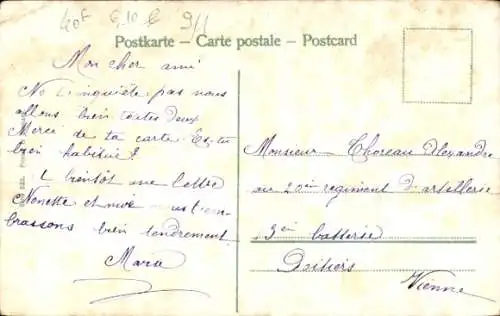 40f 6.10 € 9/1
Postkarte - Carte postale - Postcard
Mon cher ami
Ne t'inquiète pas nous
allons bien toutes deux
Merci de ta carte. Es-tu
bien habitué?
A bientôt une lettre
Nenette et moi t'em-
brassons bien tendrement
Maria
Monsieur Thoreau Alexandre
au 20è regiment d'artillerie
3è batterie
Poitiers
Vienne